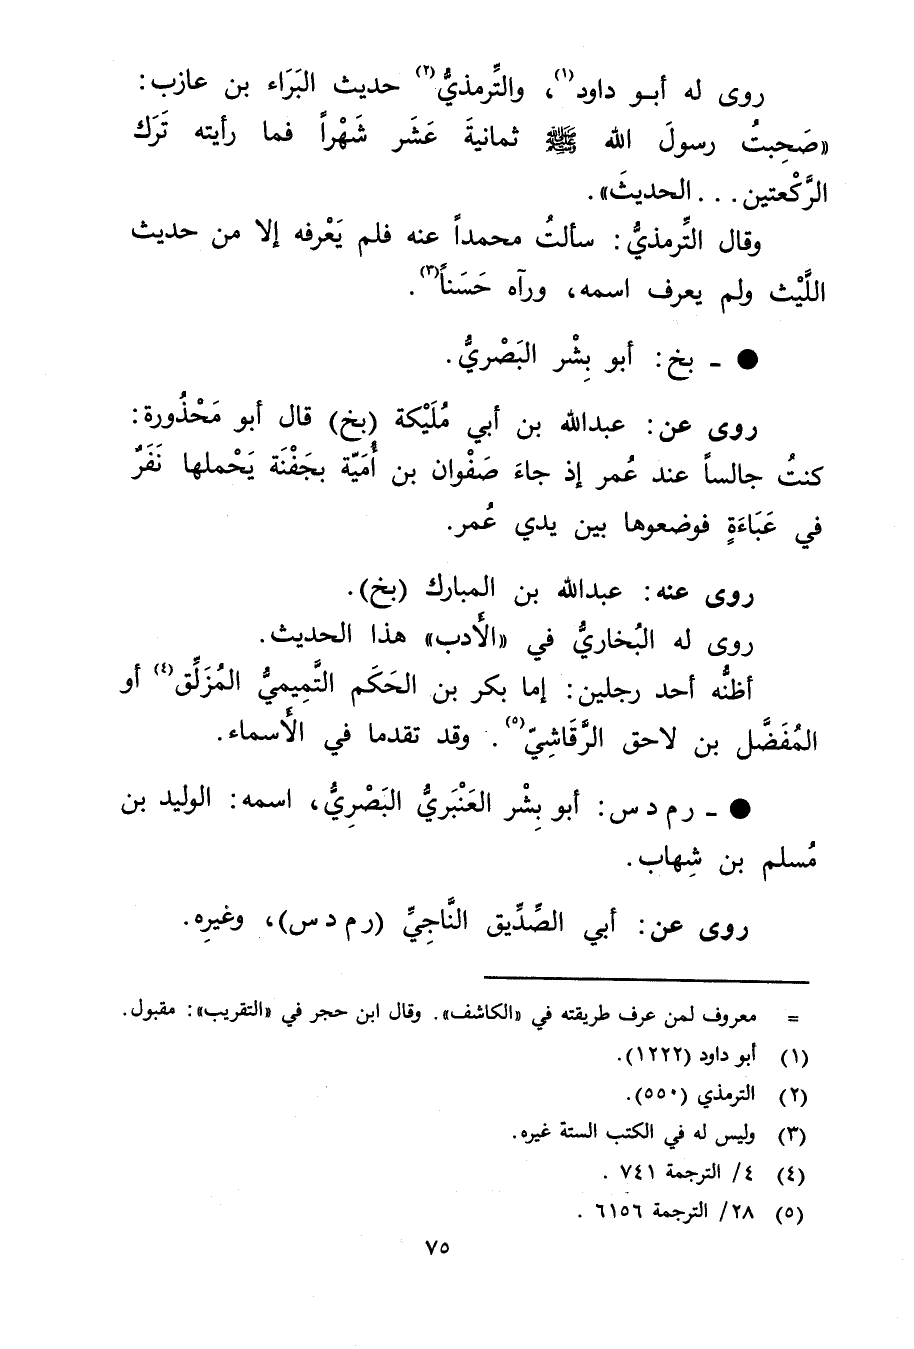 روى له أبو داود(١)، والتِّرمذيُّ(٢) حديث البَرَاء بن عازب:
«صَحِبتُ رسولَ الله ﷺ ثمانيةَ عَشَر شَهْراً فما رأيته تَرَك
الرَّكْعتين... الحديثَ».
وقال التِّرمذيُّ: سألتُ محمداً عنه فلم يَعْرفه إلا من حديث
اللَّيْث ولم يعرف اسمه، ورآه حَسَناً(٣).
● ـ بخ: أبو بِشْر البَصْريُّ.
روى عن: عبدالله بن أبي مُلَيْكة (بخ) قال أبو مَحْذُورة:
كنتُ جالساً عند عُمر إذ جاءَ صَفْوان بن أُمَيّة بجَفْنَة يَحْملها نَفَرٌ
في عَبَاءَةٍ فوضعوها بين يدي عُمر.
روى عنه: عبدالله بن المبارك (بخ).
روى له البُخاريُّ في «الأدب» هذا الحديث.
أظنُّه أحد رجلين: إما بكر بن الحَكَم التَّمِيميُّ المُزَلِّق(٤) أو
المُفَضَّل بن لاحق الرَّقَاشِيّ(٥). وقد تقدما في الأَسماء.
● ـ ر م د س: أبو بِشْر العَنْبَريُّ البَصْرِيُّ، اسمه: الوليد بن
مُسلم بن شِهاب.
روى عن: أبي الصِّدِّيق النَّاجِيِّ (ر م د س)، وغيرِه.
= معروف لمن عرف طريقته في «الكاشف». وقال ابن حجر في «التقريب»: مقبول.
(١) أبو داود (١٢٢٢).
(٢) الترمذي (٥٥٠).
(٣) وليس له في الكتب الستة غيره.
(٤) ٤/ الترجمة ٧٤١ .
(٥) ٢٨/ الترجمة ٦١٥٦ .
٧٥